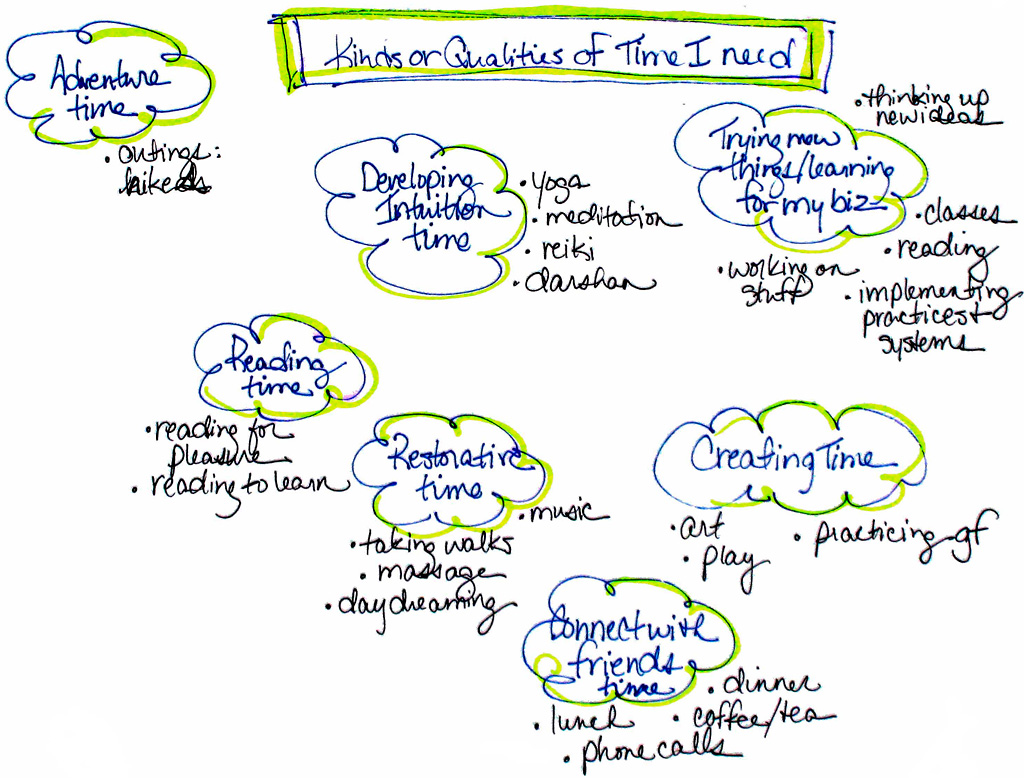 Kinds or Qualities of Time I need
Adventure
time
• outings:
hikes
Developing
Intuition
time
• yoga
• meditation
• reiki
• darshan
Trying new
things/learning
for my biz
• thinking up
new ideas
• classes
• reading
• working on
stuff
• implementing
practices +
systems
Reading
time
• reading for
pleasure
• reading to learn
Restorative
time
• music
• taking walks
• massage
• daydreaming
Creating Time
• art
• play
• practicing gf
Connect with
friends
time
• dinner
• lunch
• coffee/tea
• phone calls